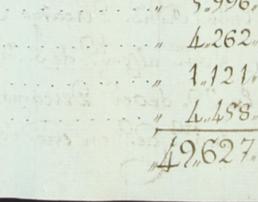 " 5"996"
" 4"262"
" 1"121"
" 4"458"
"49"627"